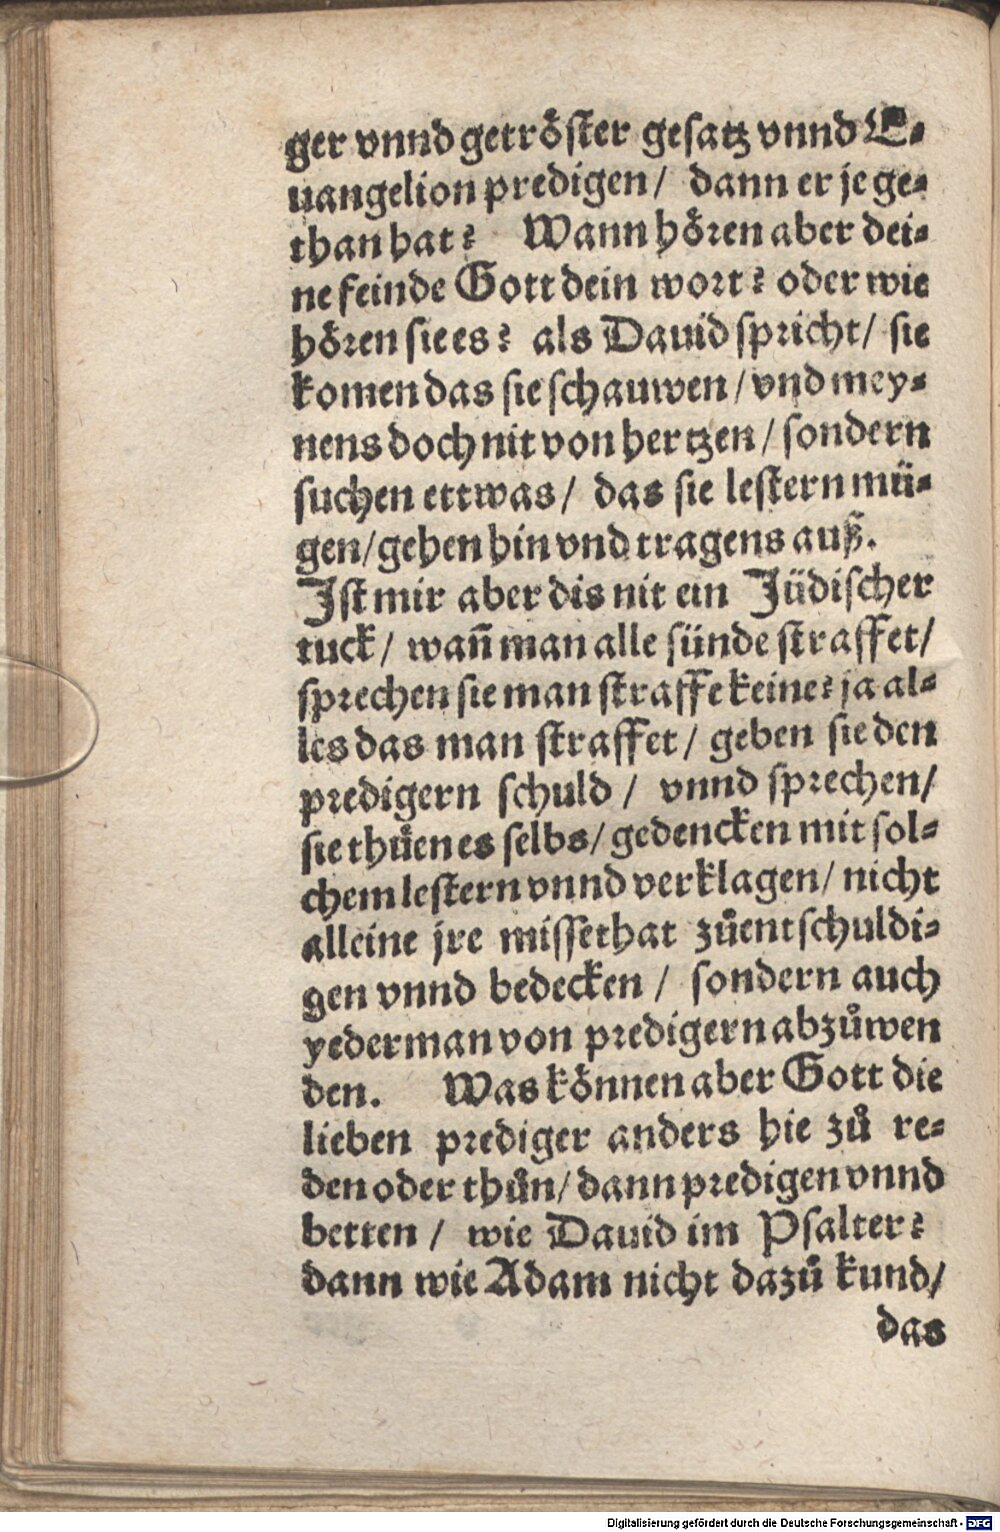 ger vnnd getröster gesatz vnnd E-
uangelion predigen/ dann er je ge-
than hat? Wann hören aber dei-
ne feinde Gott dein wort? oder wie
hören sie es? als Dauid spricht/ sie
komen das sie schauwen/ vnd mey-
nens doch nit von hertzen/ sondern
suchen ettwas/ das sie lestern mü-
gen/ gehen hin vnd tragens auß.
Ist mir aber dis nit ein Jüdischer
tuck/ wañ man alle sünde straffet/
sprechen sie man straffe keine? ja al-
les das man straffet/ geben sie den
predigern schuld/ vnnd sprechen/
sie thüen es selbs/ gedencken mit sol-
chem lestern vnnd verklagen/ nicht
alleine jre missethat zůentschuldi-
gen vnnd bedecken/ sondern auch
yederman von predigern abzůwen
den. Was können aber Gott die
lieben prediger anders hie zů re-
den oder thůn/ dann predigen vnnd
betten/ wie Dauid im Psalter?
dann wie Adam nicht dazů kund/
das
Digitalisierung gefördert durch die Deutsche Forschungsgemeinschaft - DFG